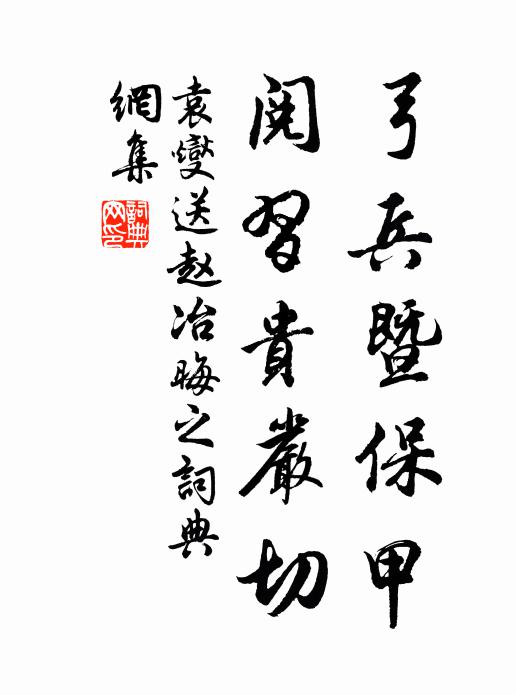 弓兵暨保甲
阅習貴嚴切
袁燮送赵冶晦之詞典
網集
詞典网印